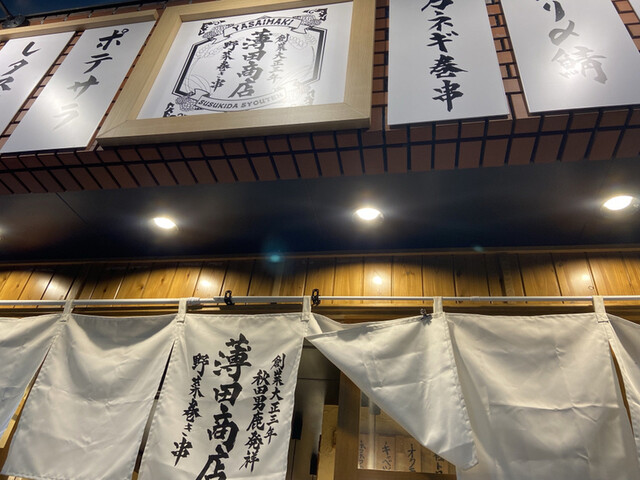 レタス
ポテサラ
YASAIMAKI
創業大正三年
薄田商店
野菜巻き串
SUSUKIDA SYOUTEN
ネギ巻串
鯖
創業大正三年
秋田男鹿発祥
薄田商店
野菜巻き串